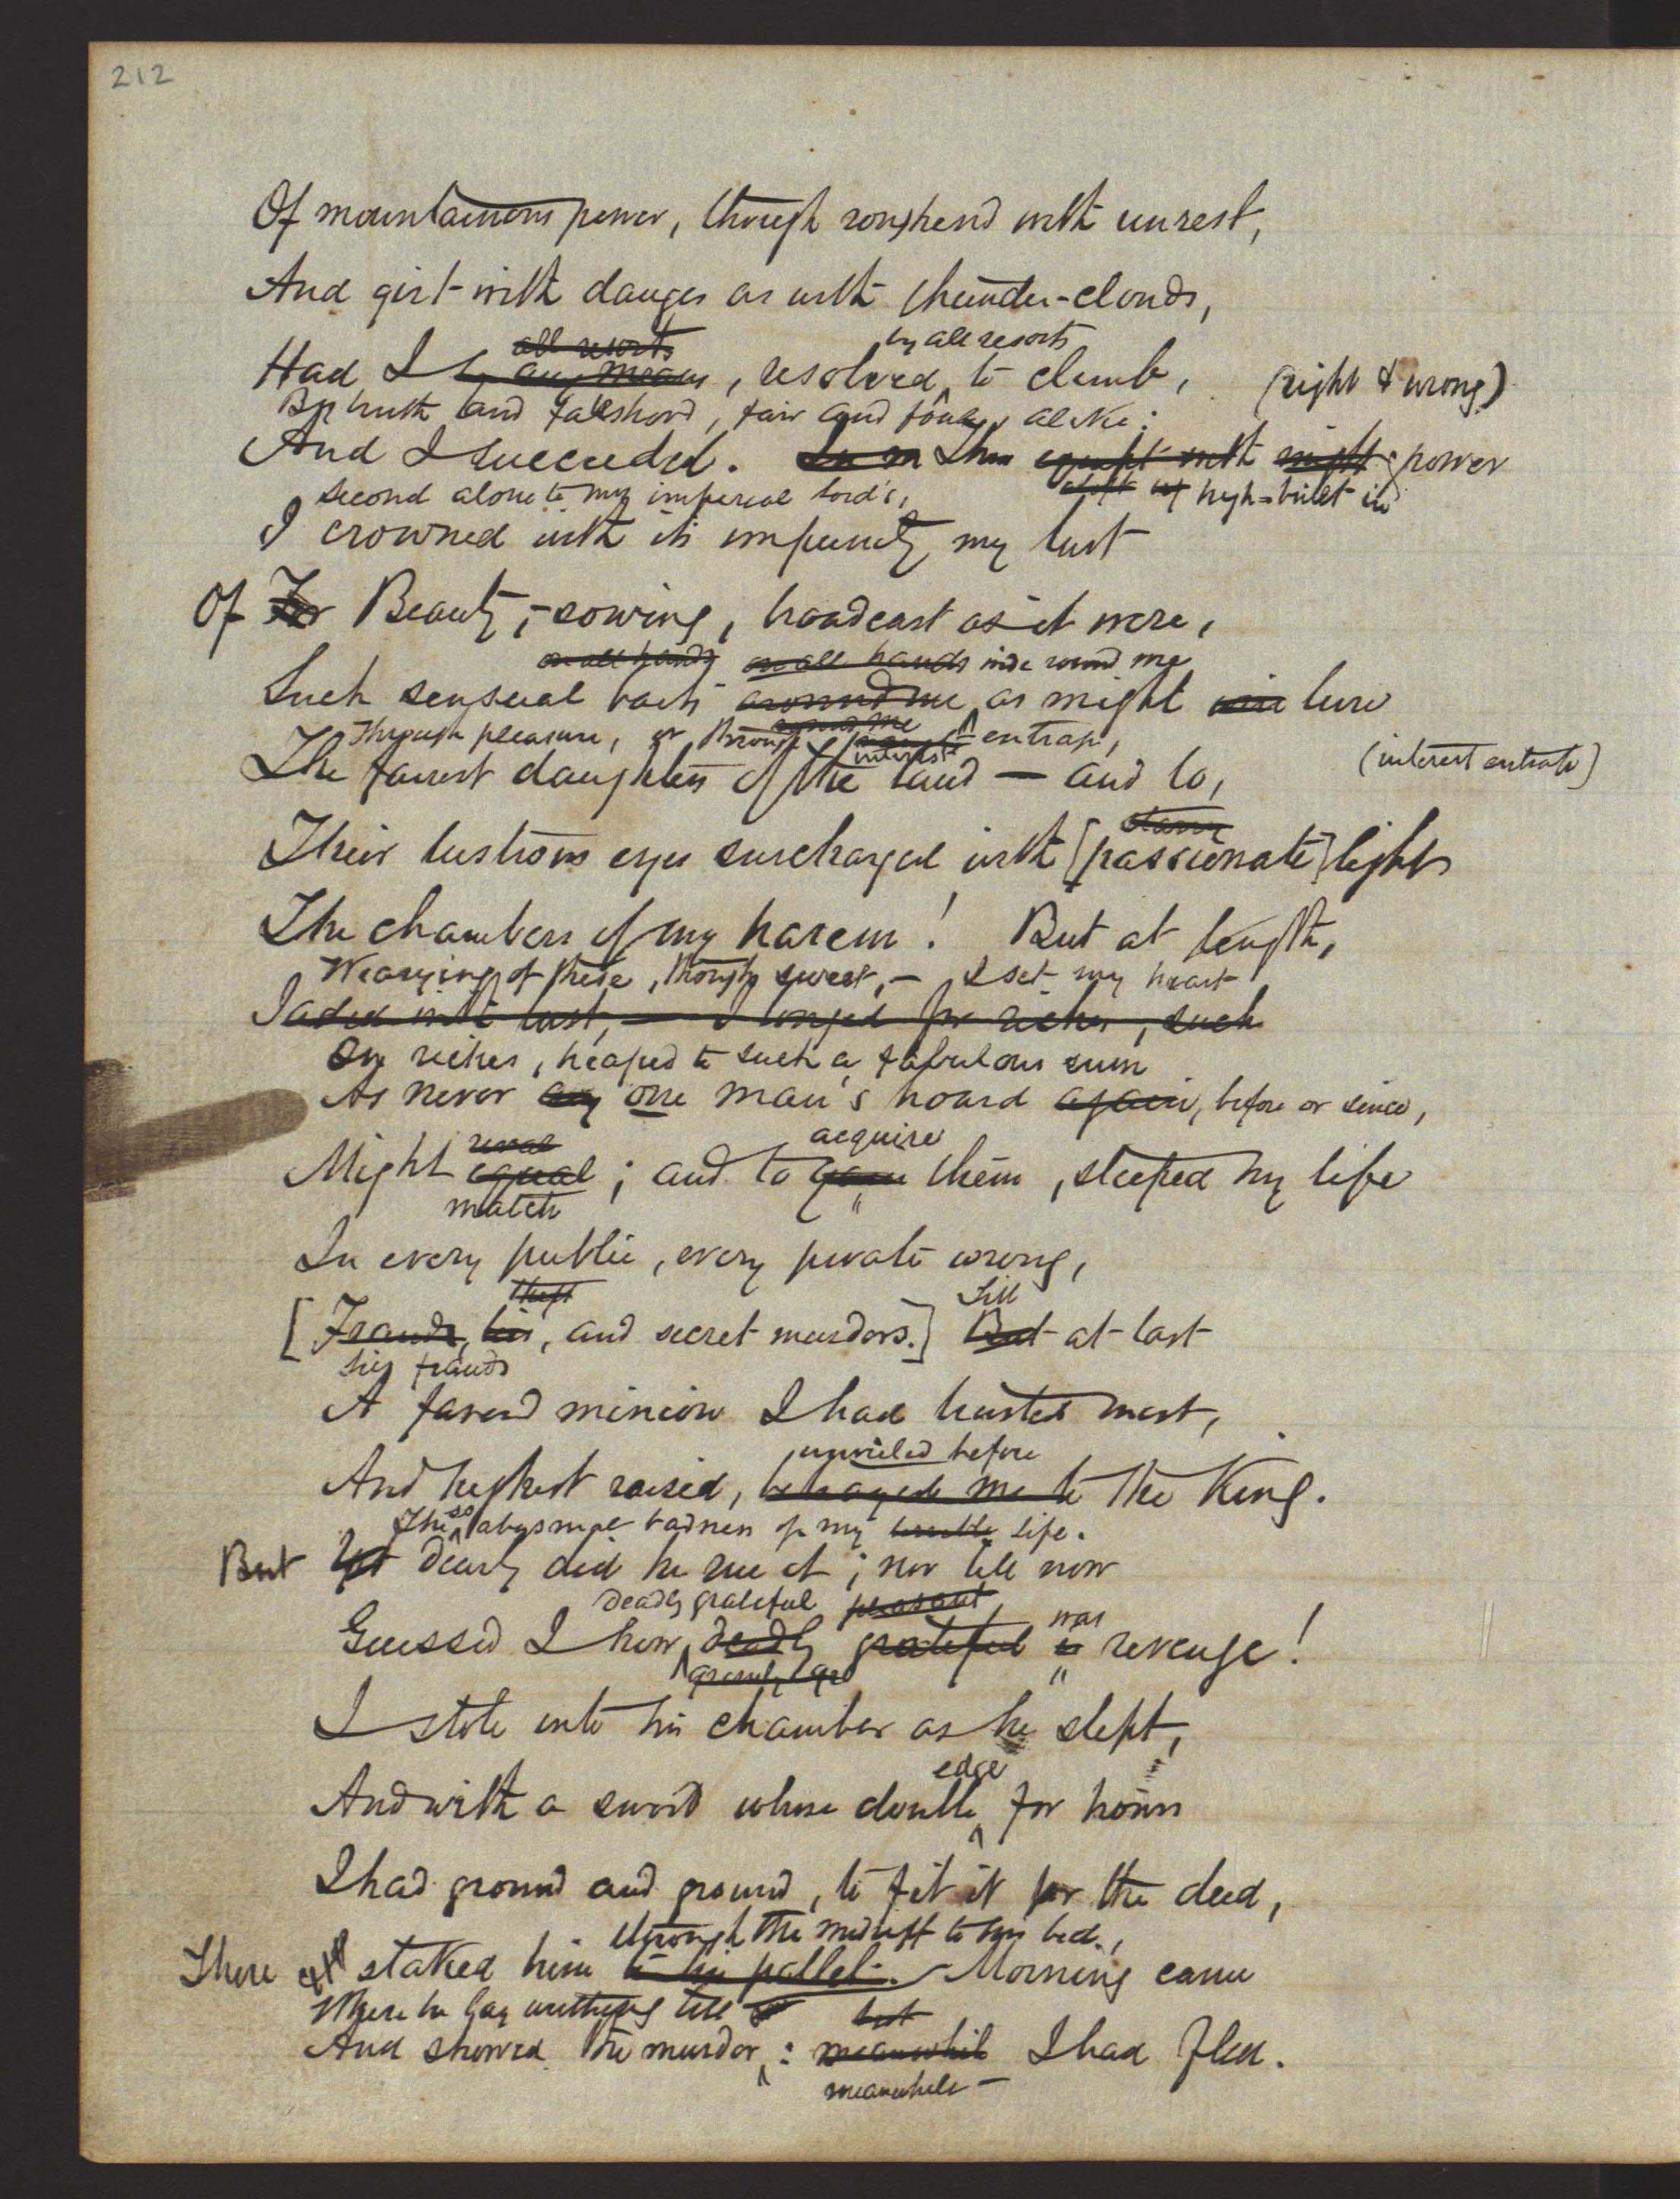 212
Of mountainous power, though roughend with unrest,
And girt with danger as with thunder-clouds,
all resorts by all resorts
Had I by any means, resolved, to climb, (right & wrong)
By truth and falsehood, fair and foul, alike:
And I succeeded. equipt with might power
second alone to my imperial lord's, high-built in
I crowned with its impunity my lust
Of For Beauty, – sowing, broadcast as it were,
on all hands on all hands wide round me
Such sensual baits around me as might lure
Through pleasure, or through interest entrap,
The fairest daughters of the land — and lo, (interest entrap)
Their lustrous eyes surcharged with [passionate] light
The chambers of my harem! But at length,
Wearying of these, though sweet, – I set my heart
Jaded with lust, — I longed for riches, such
On riches, heaped to such a fabulous sum
As never any one man's hoard again, before or since,
rival acquire
Might equal; and to gain them, steeped my life
match
In every public, every private wrong,
theft Till
[Frauds, lies, and secret murders.] But at last
Sly frauds
A favord minion I had trusted most,
unveiled before
And highest raised, betrayed me to the King.
The so abysmal badness of my life.
But Yet dearly did he rue it; nor till now
deadly grateful pleasant
Guessed I how deadly grateful is was revenge!
I stole into his chamber as he slept,
edge
And with a sword whose double for hours
I had ground and ground, to fit it for the deed,
through the midriff to his bed,
There staked him to his pallet. – Morning came
Where he lay writhing till
but
And showed the murder: meanwhile I had fled.
meanwhile –